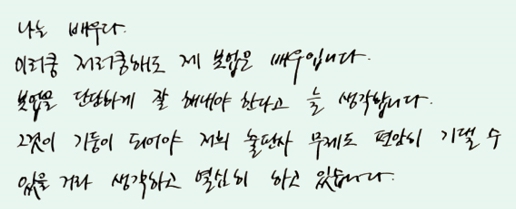 나는 배우다.
이러쿵 저러쿵해도 제 본업은 배우입니다.
본업을 단단하게 잘 해내야 한다고 늘 생각합니다.
그것이 기둥이 되어야 저의 출판사 무제도 편안히 기댈 수
있을 거라 생각하고 열심히 하고 있습니다.